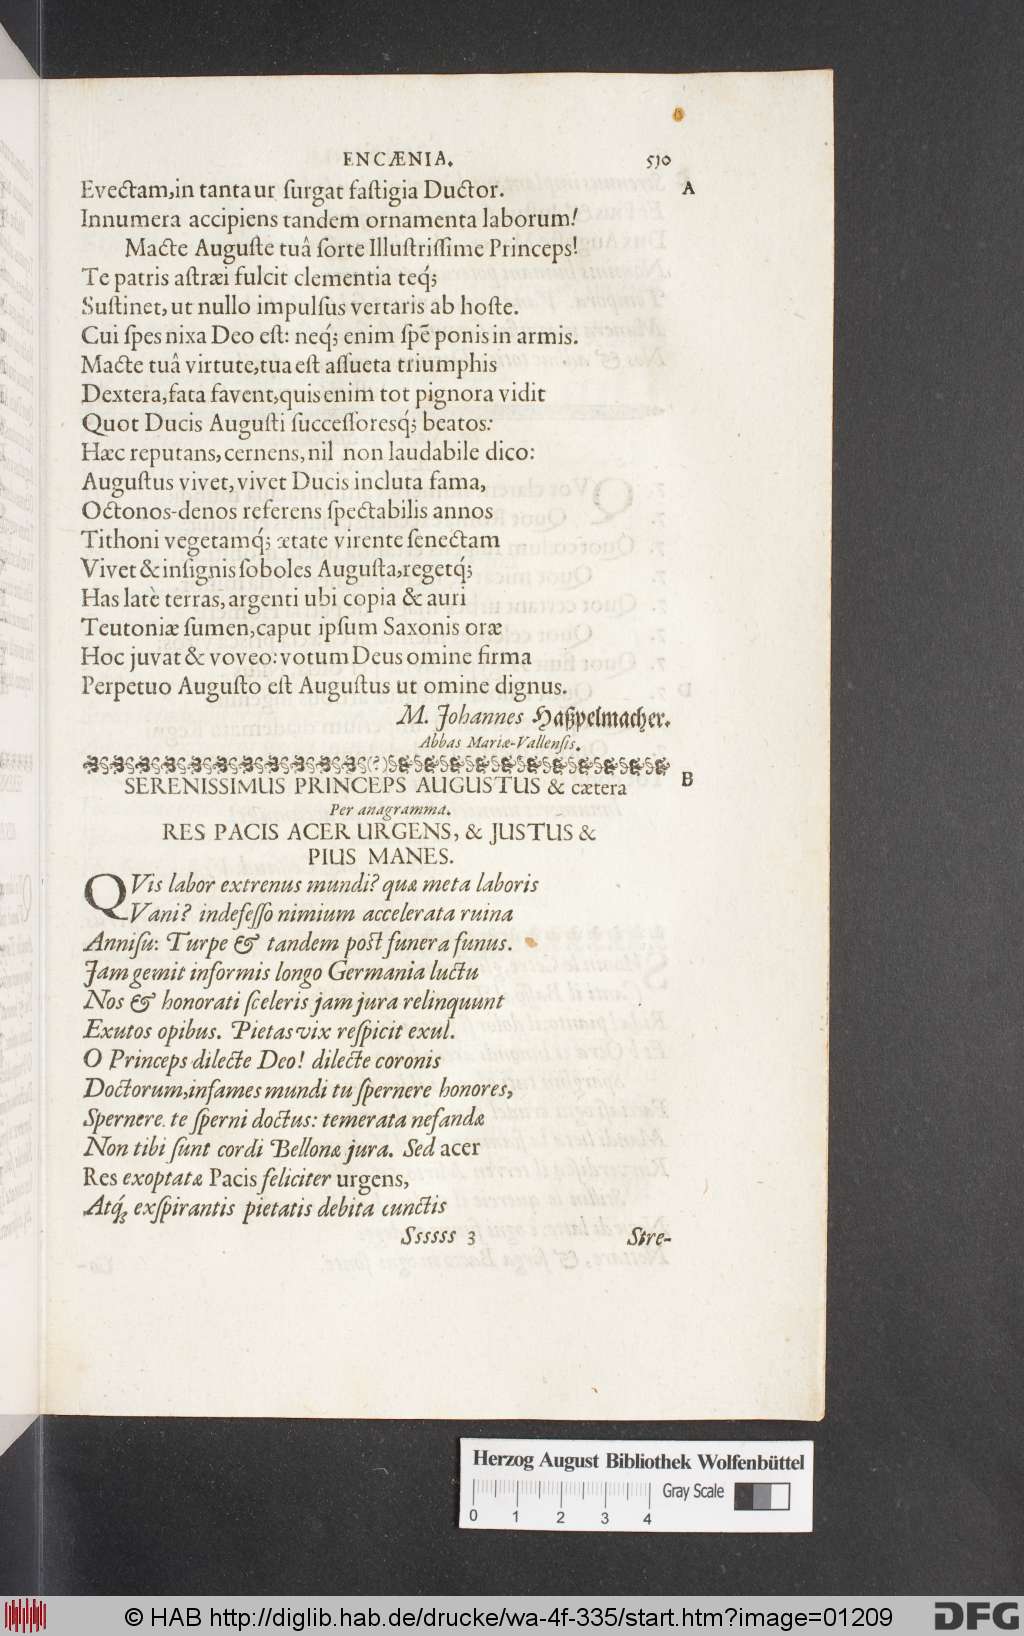 ENCÆNIA. 510
Evectam, in tanta ut ſurgat faſtigia Ductor. A
Innumera accipiens tandem ornamenta laborum!
Macte Auguſte tuâ ſorte Illuſtriſſime Princeps!
Te patris aſtræi fulcit clementia teq́;
Suſtinet, ut nullo impulſus vertaris ab hoſte.
Cui ſpes nixa Deo eſt: neq́; enim ſpē ponis in armis.
Macte tuâ virtute, tua eſt aſſueta triumphis
Dextera, fata favent, quis enim tot pignora vidit
Quot Ducis Auguſti ſucceſſoresq́; beatos:
Hæc reputans, cernens, nil non laudabile dico:
Auguſtus vivet, vivet Ducis incluta fama,
Octonos-denos referens ſpectabilis annos
Tithoni vegetamq́; ætate virente ſenectam
Vivet & inſignis ſoboles Auguſta, regetq́;
Has latè terras, argenti ubi copia & auri
Teutoniæ ſumen, caput ipſum Saxonis oræ
Hoc juvat & voveo: votum Deus omine firma
Perpetuo Auguſto eſt Auguſtus ut omine dignus.
M. Johannes Haßpelmacher.
Abbas Mariæ-Vallenſis.
(?)
SERENISSIMUS PRINCEPS AUGUSTUS & cætera B
Per anagramma.
RES PACIS ACER URGENS, & JUSTUS &
PIUS MANES.
QVis labor extrenus mundi? quæ meta laboris
Vani? indefeſſo nimium accelerata ruina
Anniſu: Turpe & tandem poſt funera funus.
Jam gemit informis longo Germania luctu
Nos & honorati ſceleris jam jura relinquunt
Exutos opibus. Pietas vix reſpicit exul.
O Princeps dilecte Deo! dilecte coronis
Doctorum, infames mundi tu ſpernere honores,
Spernere te ſperni doctus: temerata nefandæ
Non tibi ſunt cordi Bellonæ jura. Sed acer
Res exoptatæ Pacis feliciter urgens,
Atq́; exſpirantis pietatis debita cunctis
Ssssss 3 Stre-
Herzog August Bibliothek Wolfenbüttel
Gray Scale
0 1 2 3 4
© HAB http://diglib.hab.de/drucke/wa-4f-335/start.htm?image=01209 DFG